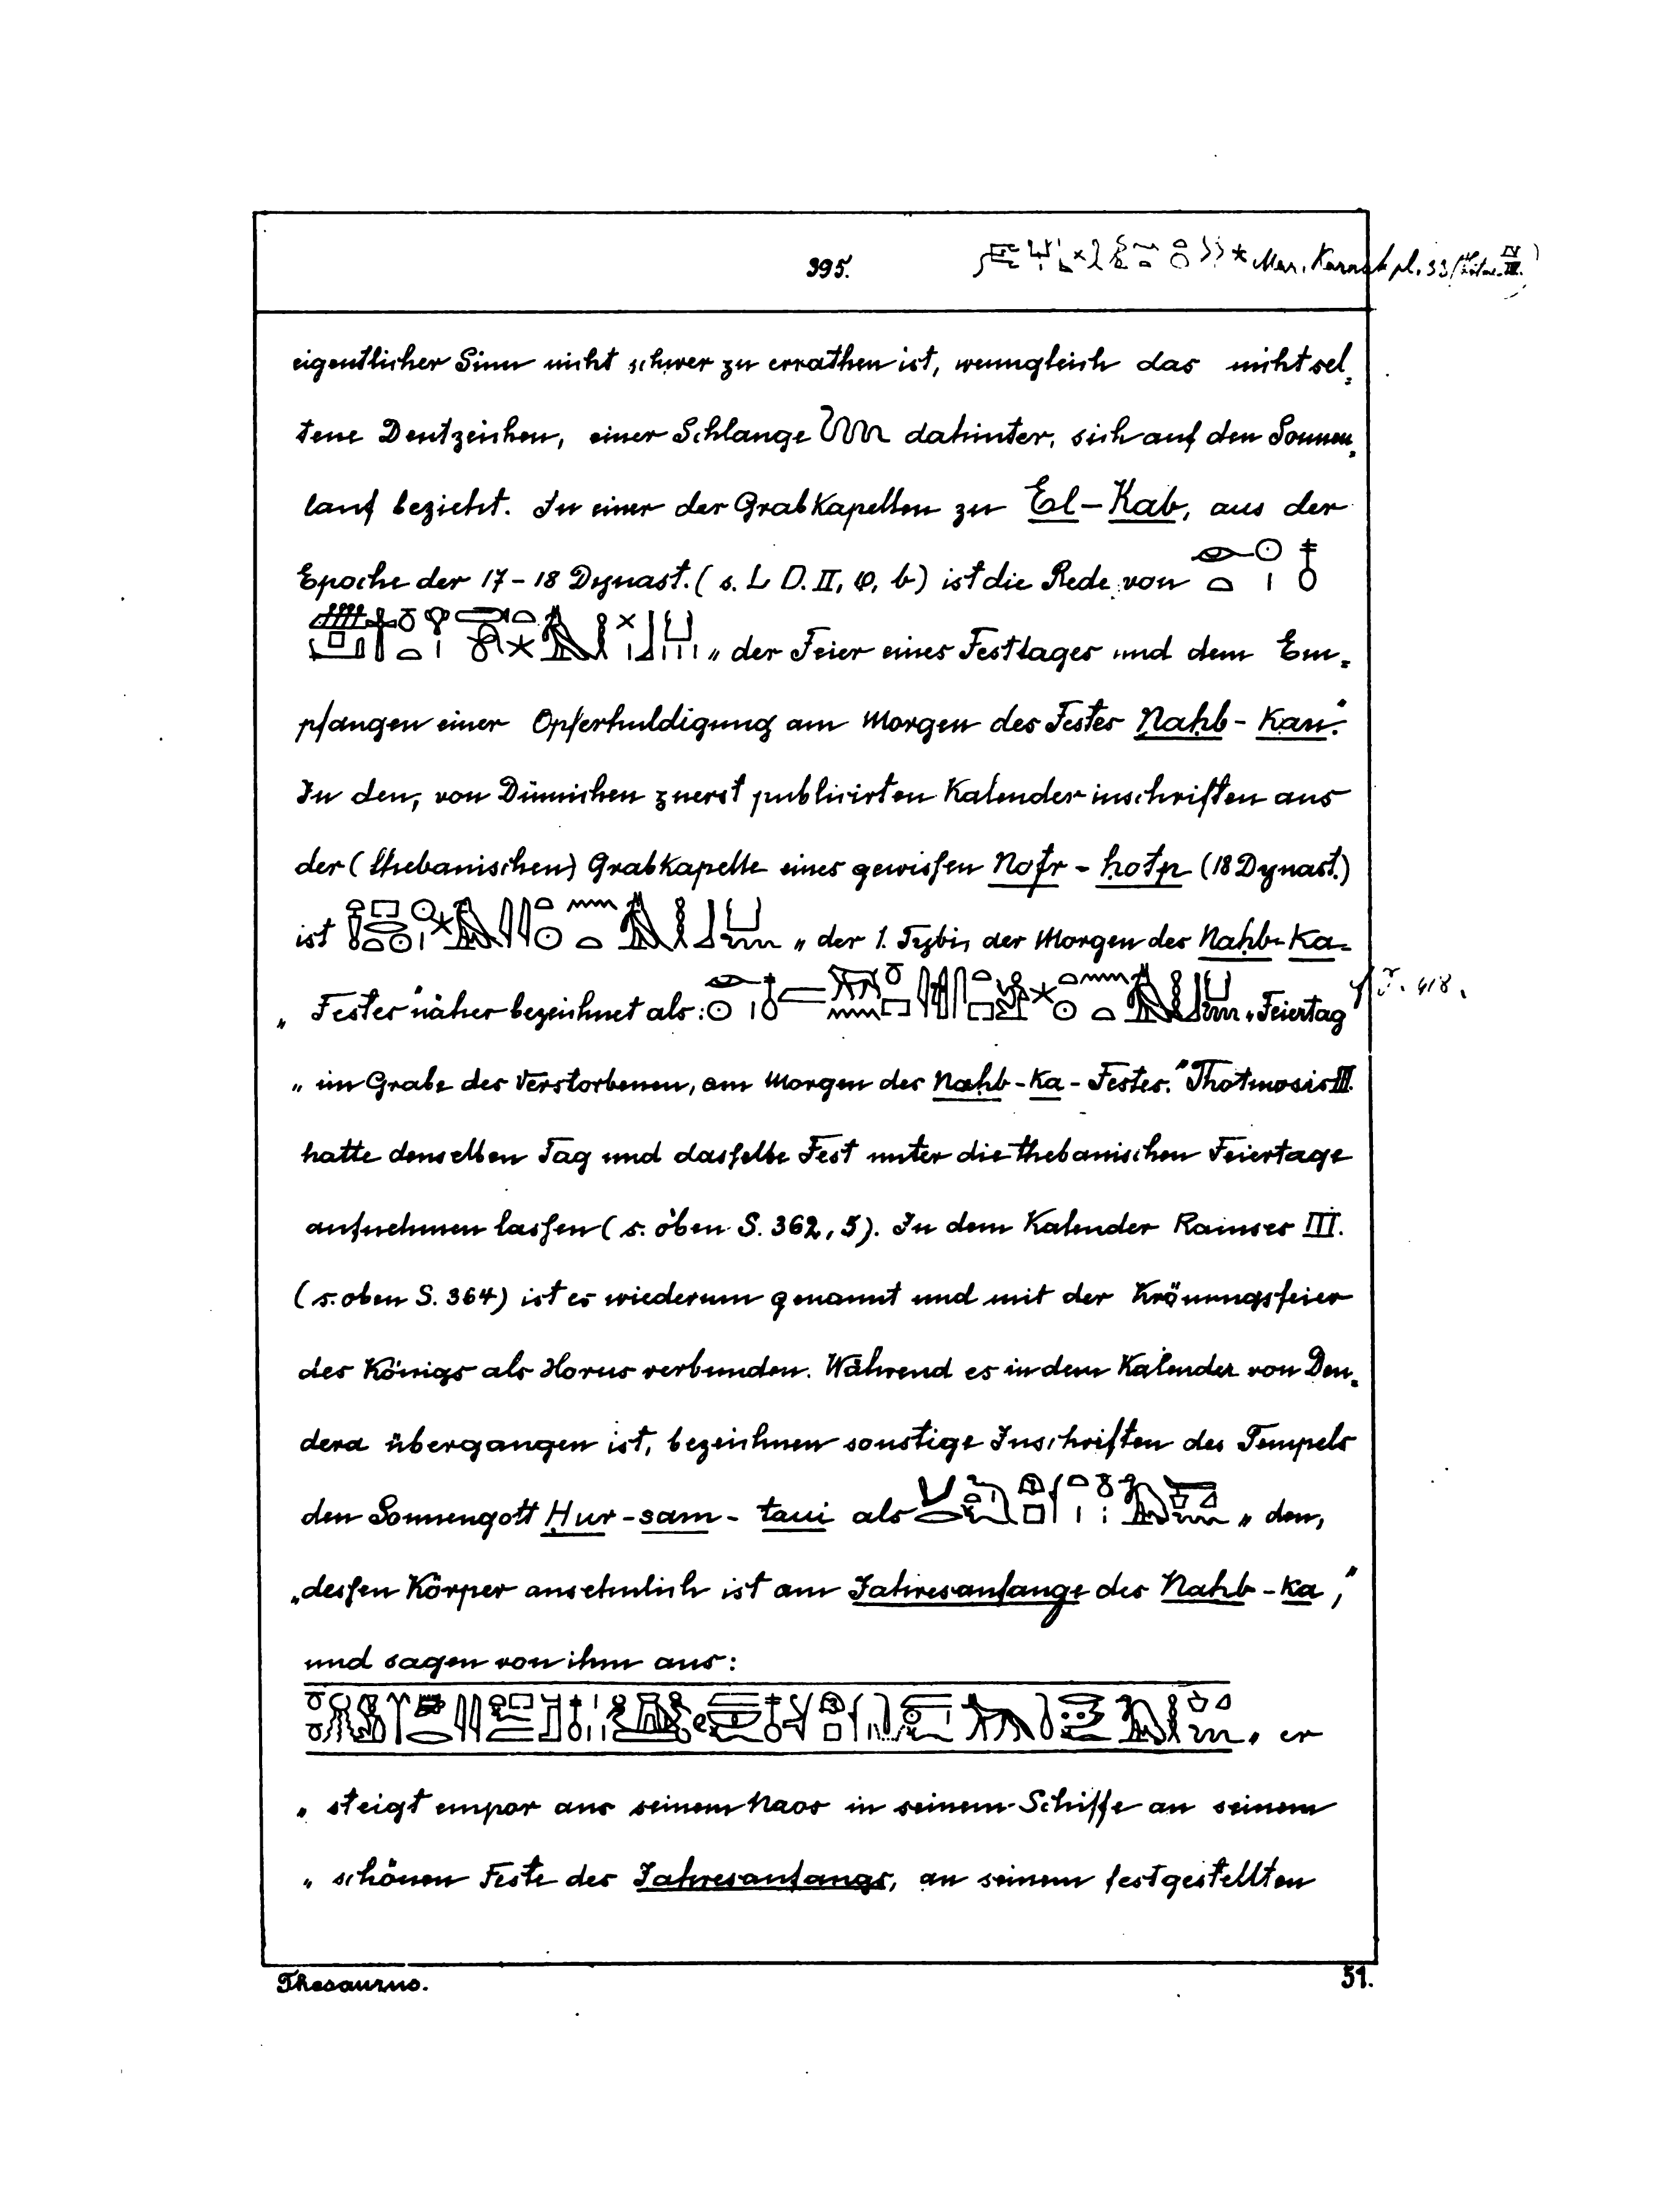 395.
Mar. Karnak pl. 33
eigentlicher Sinn nicht schwer zu errathen ist, wenngleich das nicht sel=
tene Deutzeichen, einer Schlange dahinter, sich auf den Sonnen=
lauf bezieht. In einer der Grabkapellen zu El-Kab, aus der
Epoche der 17-18 Dynast. (s. L D. II, φ, b) ist die Rede von
„der Feier eines Festtages und dem Em=
pfangen einer Opferhuldigung am Morgen des Festes Nahb-Kau."
In den, von Dümichen zuerst publicirten Kalenderinschriften aus
der (thebanischen) Grabkapelle eines gewissen Nofr-hotp (18 Dynast.)
ist „der 1. Tybi, der Morgen des Nahb-Ka-
„Festes" näher bezeichnet als: „Feiertag
S. 418.
„im Grabe des Verstorbenen, am Morgen des Nahb-Ka-Festes." Thotmosis III.
hatte denselben Tag und dasselbe Fest unter die thebanischen Feiertage
aufnehmen lassen (s. oben S. 362, 5). In dem Kalender Ramses III.
(s. oben S. 364) ist es wiederum genannt und mit der Krönungsfeier
des Königs als Horus verbunden. Während es in dem Kalender von Den=
dera übergangen ist, bezeichnen sonstige Inschriften des Tempels
den Sonnengott Hur-sam-taui als „den,
„dessen Körper ansehnlich ist am Jahresanfange des Nahb-Ka,"
und sagen von ihm aus:
„er
„steigt empor aus seinem Naos in seinem Schiffe an seinem
„schönen Feste des Jahresanfangs, an seinem festgestellten
Thesaurus.
51.